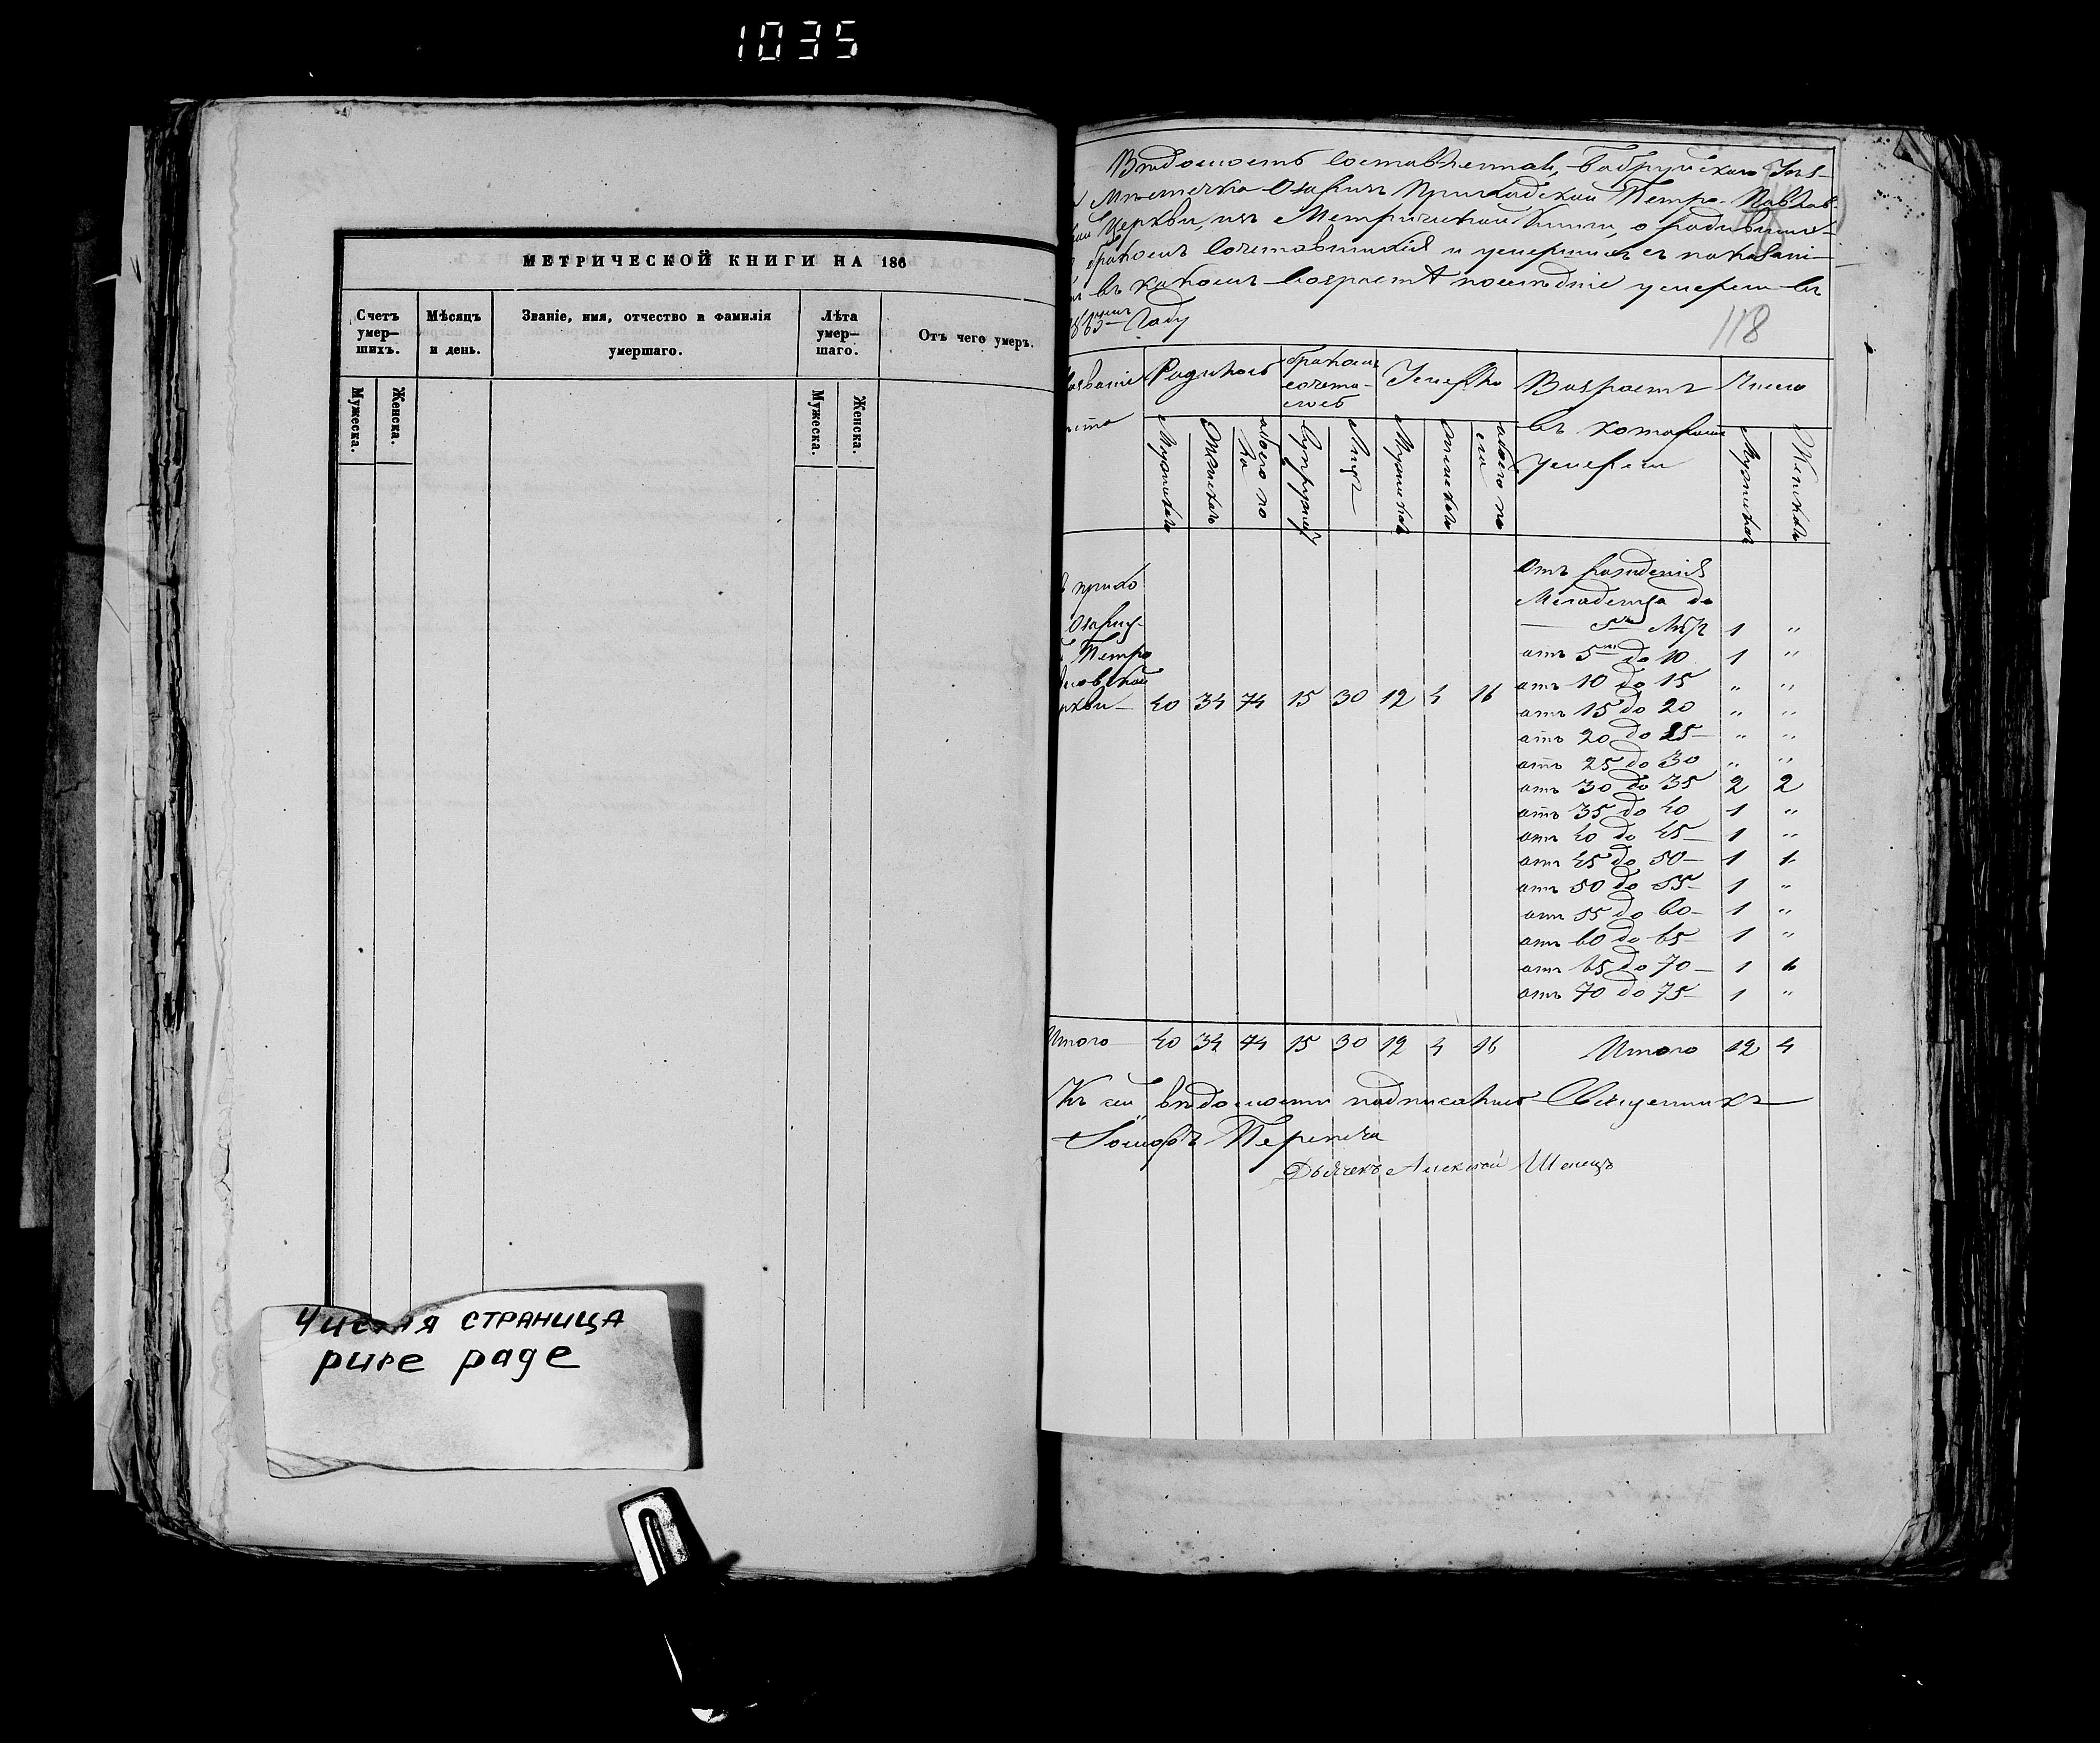 1035
МЕТРИЧЕСКОЙ КНИГИ НА 186
Счетъ умер— шихъ.
Мѣсяцъ и день.
Званіе, имя, отчество и фамилія умершаго.
Лѣта умер— шаго.
Отъ чего умеръ.
Мужеска.
Женска.
Мужеска.
Женска.
Чистая страница
pure page
Вѣдомость составленная, Бобруйскаго Уѣз-
Мѣстечка Озаричъ Приходской Петро-Павлов-
Церкви, изъ Метрической Книги, о родивших-
бракомъ сочетавшихся и умершихъ съ показані-
въ какомъ возрастѣ послѣдніе умерли въ
Году
118
Родилось
бракомъ сочета- лось
Умерло
Возрастъ въ которомъ умерли
Число
Мужеска
Женска
обоего по ла
Супружес
Лицъ
Мужеска
Женска
обоего по ла
Мужеска
Женска
прихо
Озариц-
Петро
40 34 74 15 30 12 4 16
Отъ рожденія
Младенца до
5 лѣтъ 1 "
отъ 5 до 10 1 "
отъ 10 до 15 " "
отъ 15 до 20 " "
отъ 20 до 25 — " "
отъ 25 до 30 " "
отъ 30 до 35 2 2
отъ 35 до 40 1 "
отъ 40 до 45 — 1 "
отъ 45 до 50 — 1 1
отъ 50 до 55 — 1 "
отъ 55 до 60 — 1 "
отъ 60 до 65 — 1 "
отъ 65 до 70 — 1 1
отъ 70 до 75 — 1 "
Итого 40 34 74 15 30 12 4 16 Итого 12 4
Къ сей вѣдомости подписался Священникъ
Дьячекъ Алексѣй